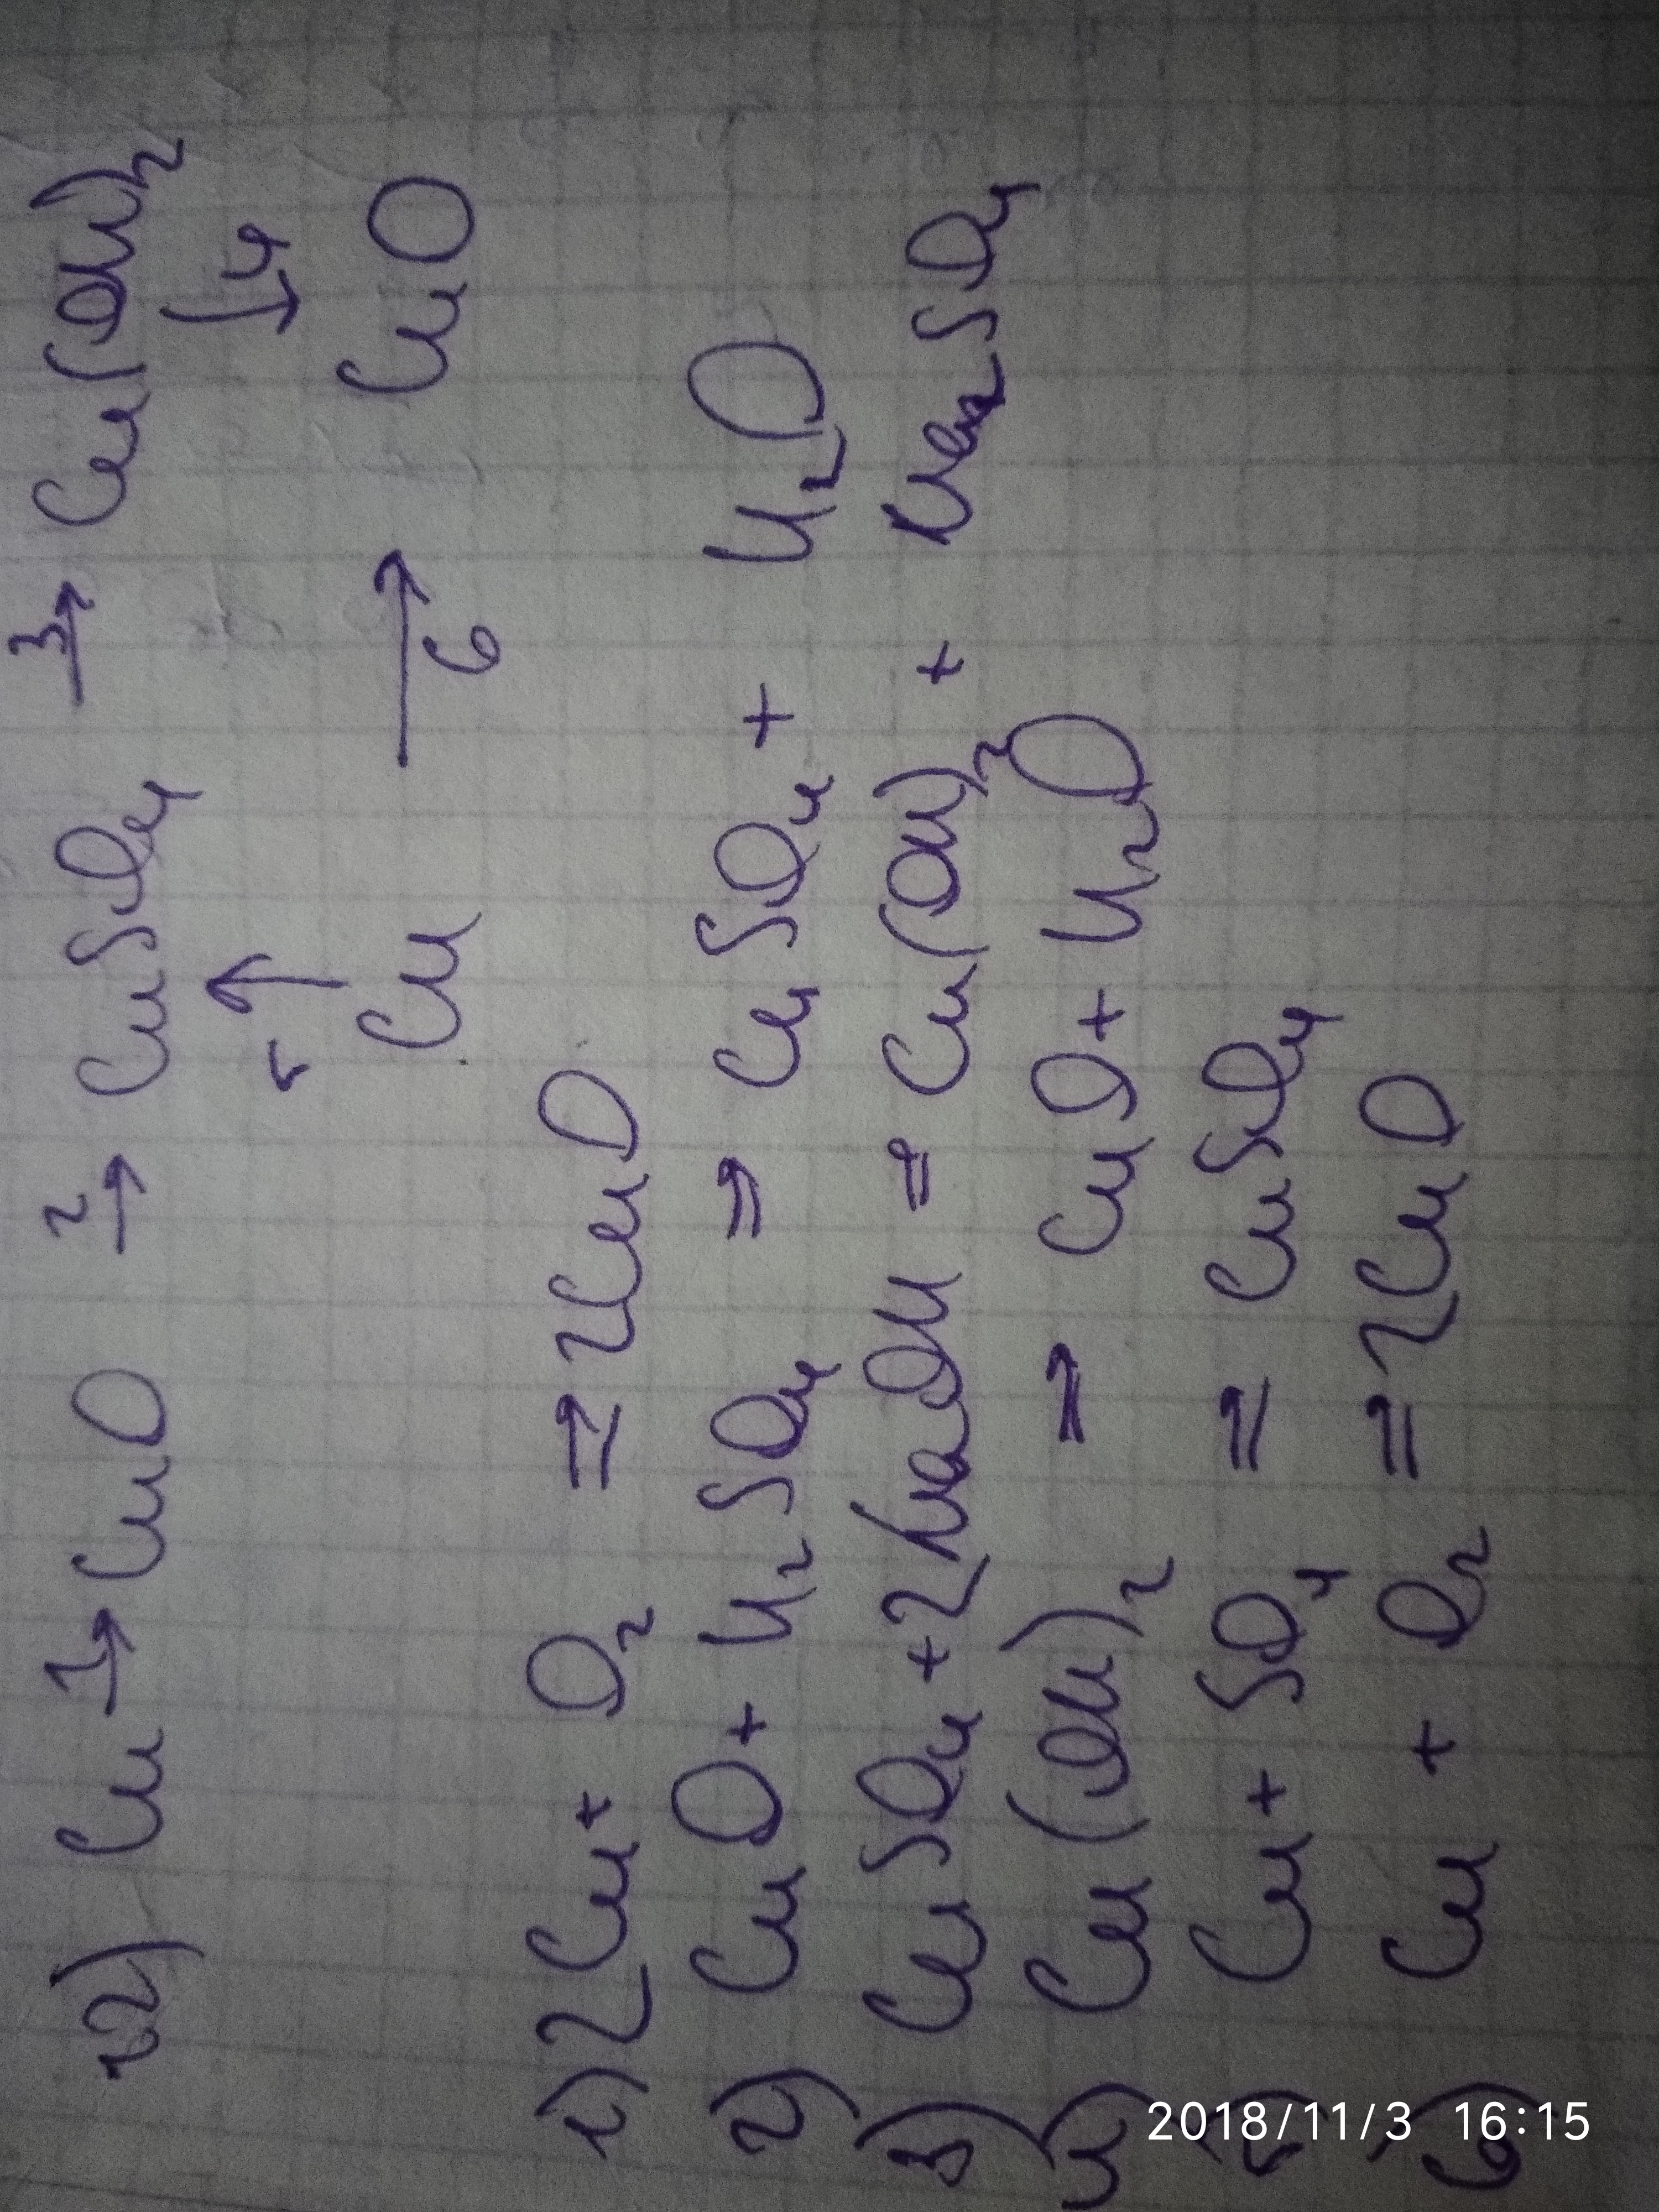 в2) Cu 1→ CuO 2→ CuSO4 3→ Cu(OH)2
5 ↑ ↓ 4
Cu →6 CuO
1) 2Cu + O2 ⇒ 2CuO
2) CuO + H2SO4 ⇒ CuSO4 + H2O
3) CuSO4 + 2NaOH = Cu(OH)2 + Na2SO4
4) Cu(OH)2 ⇒ CuO + H2O
5) Cu + SO4 ⇒ CuSO4
6) Cu + O2 ⇒ 2CuO
2018/11/3 16:15